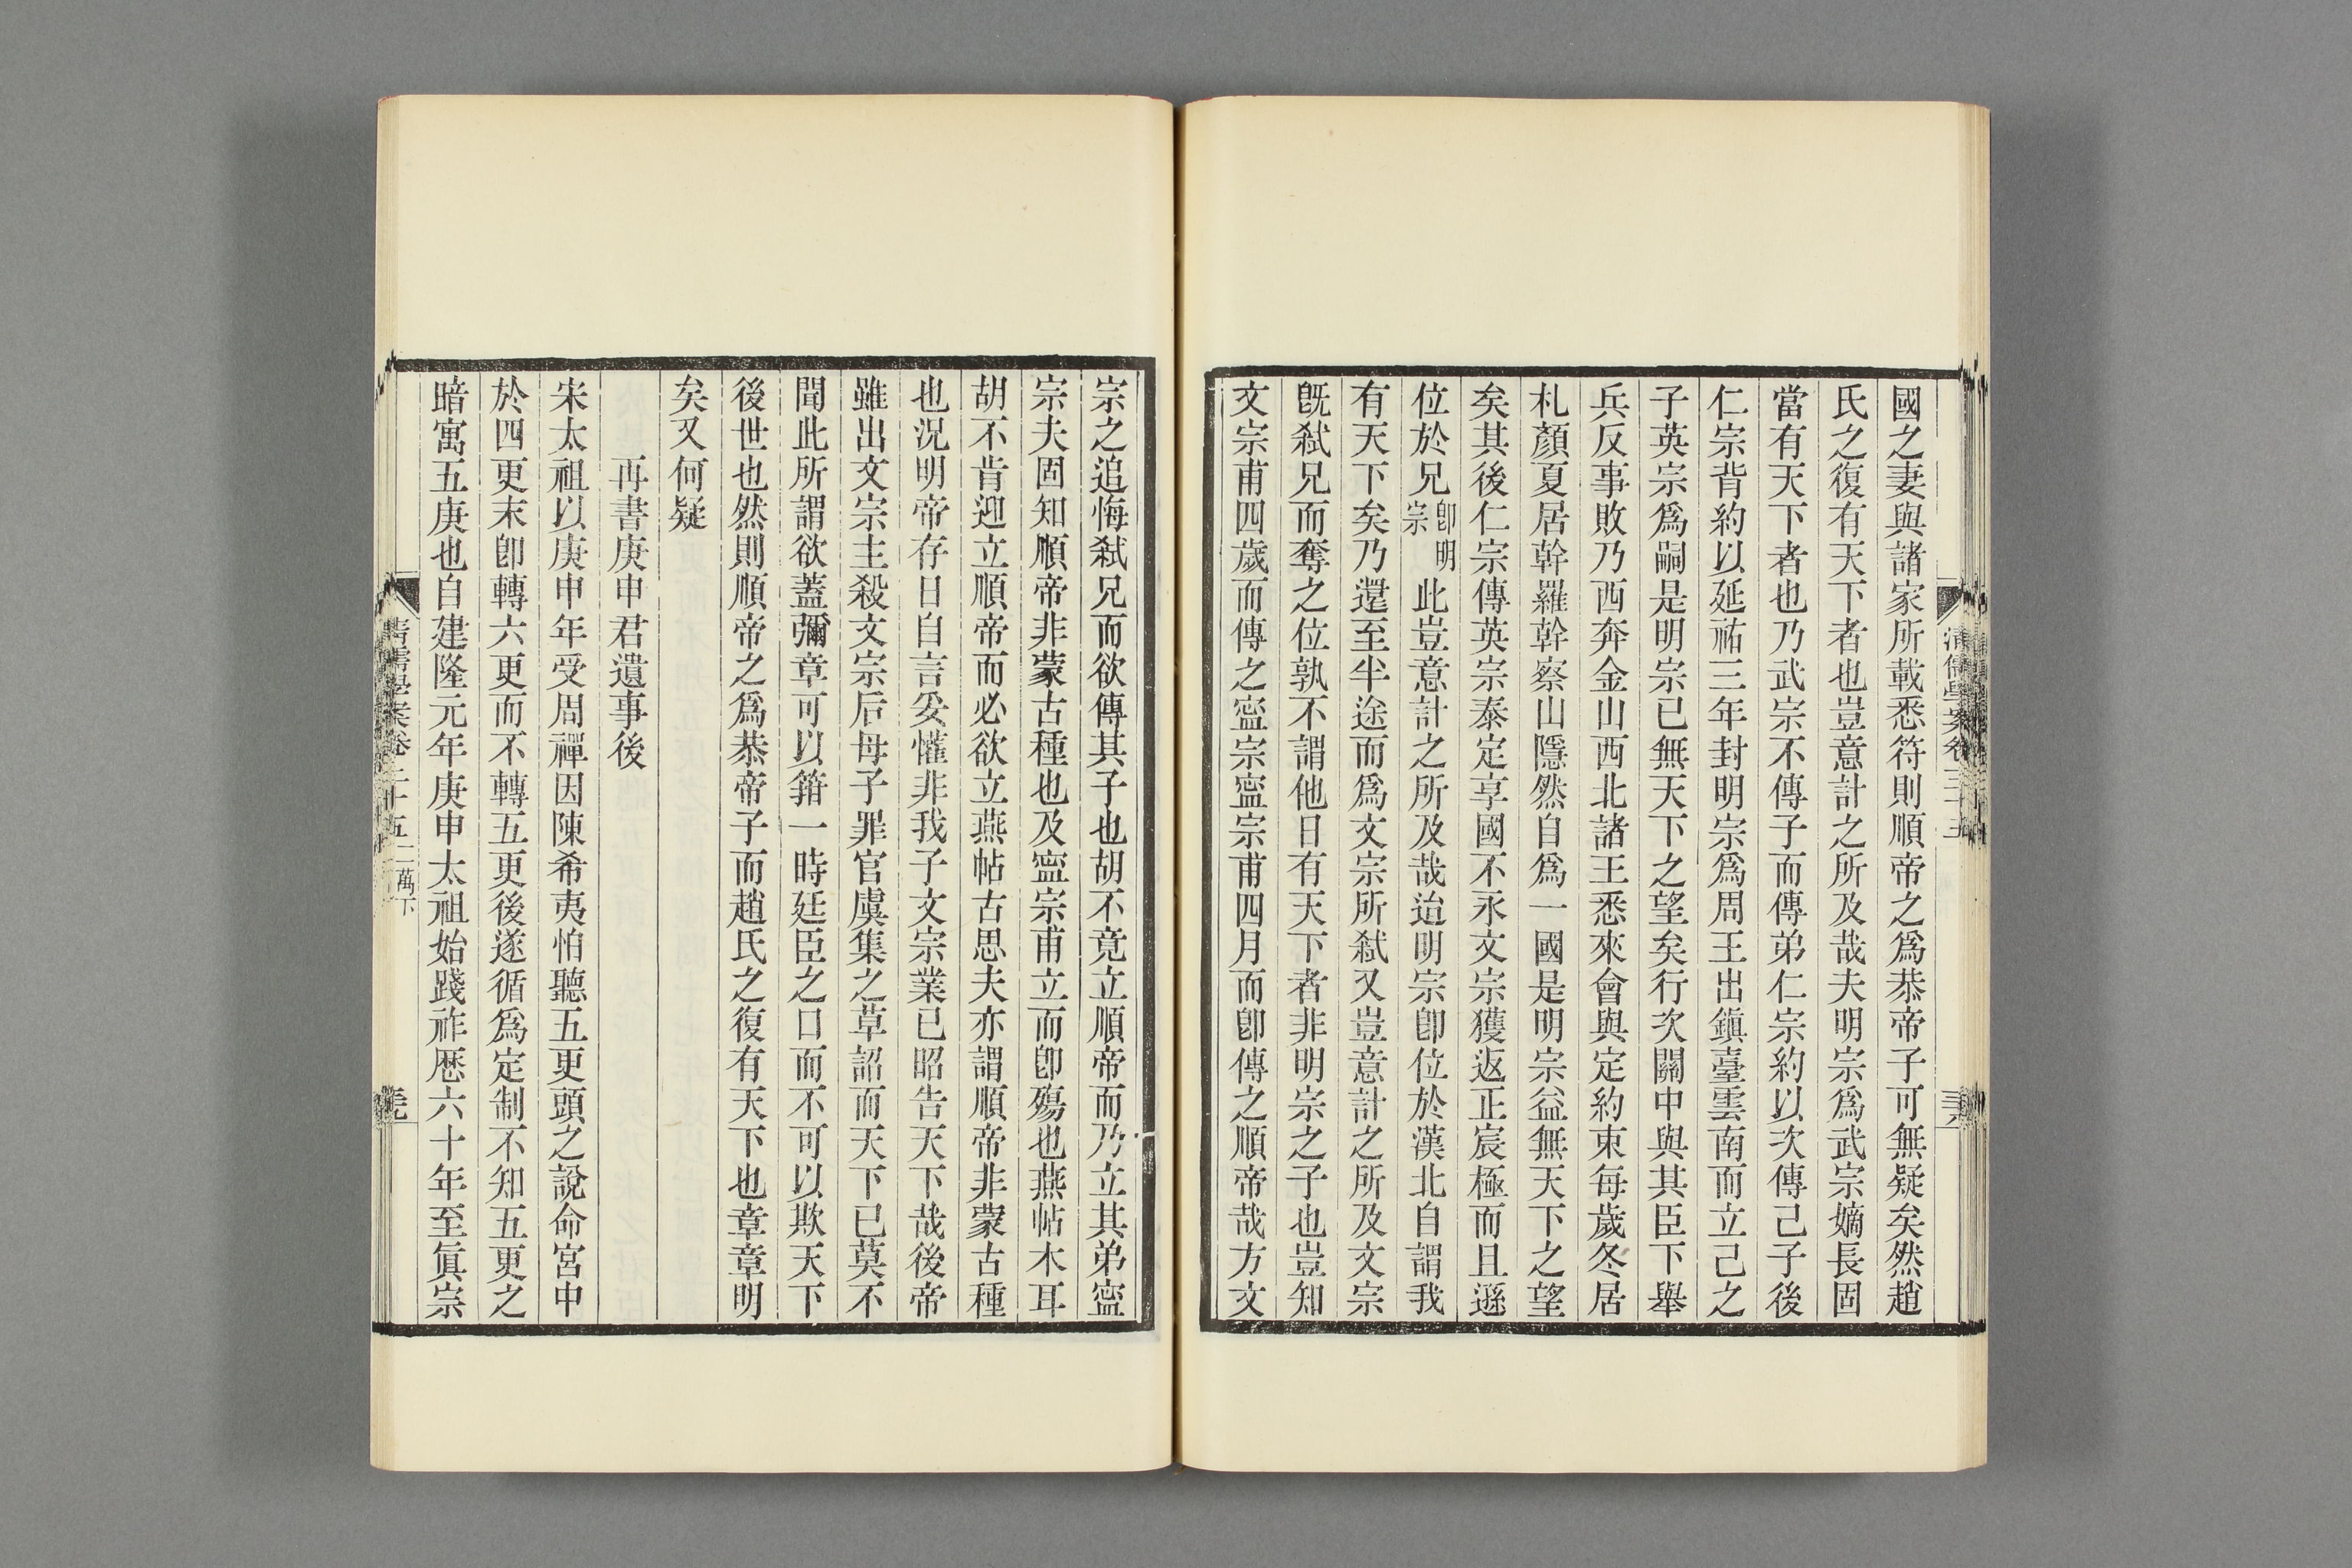 國之妻與諸家所載悉符則順帝之爲恭帝子可無疑矣然趙
氏之復有天下者也豈意計之所及哉夫明宗爲武宗嫡長固
當有天下者也乃武宗不傳子而傳弟仁宗約以次傳己子後
仁宗背約以延祐三年封明宗爲周王出鎭臺雲南而立己之
子英宗爲嗣是明宗已無天下之望矣行次關中與其臣下舉
兵反事敗乃西奔金山西北諸王悉來會與定約束每歲冬居
札顏夏居幹羅幹察山隱然自爲一國是明宗益無天下之望
矣其後仁宗傳英宗泰定享國不永文宗獲返正宸極而且遜
位於兄卽明宗此豈意計之所及哉迨明宗卽位於漠北自謂我
有天下矣乃還至半途而爲文宗所弑又豈意計之所及文宗
旣弑兄而奪之位孰不謂他日有天下者非明宗之子也豈知
文宗甫四歲而傳之寍宗寍宗甫四月而卽傳之順帝哉方文
清儒學案卷二十五
宗之追悔弑兄而欲傳其子也胡不竟立順帝而乃立其弟寍
宗夫固知順帝非蒙古種也及寍宗甫立而卽殤也燕帖木耳
胡不肯迎立順帝而必欲立燕帖古思夫亦謂順帝非蒙古種
也況明帝存日自言妥懽非我子文宗業已昭告天下哉後帝
雖出文宗主殺文宗后母子罪官虞集之草詔而天下已莫不
聞此所謂欲蓋彌章可以箝一時廷臣之口而不可以欺天下
後世也然則順帝之爲恭帝子而趙氏之復有天下也章章明
矣又何疑
再書庚申君遺事後
宋太祖以庚申年受周禪因陳希夷怕聽五更頭之說命宮中
於四更末卽轉六更而不轉五更後遂循爲定制不知五更之
暗寓五庚也自建隆元年庚申太祖始踐祚歷六十年至眞宗
清儒學案卷二十五